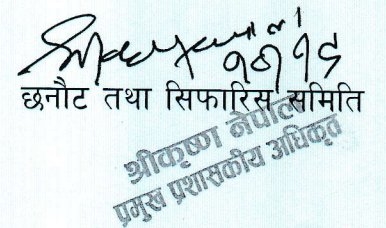 छनौट तथा सिफारिस समिति
श्रीकृष्ण नेपाल
प्रमुख प्रशासकीय अधिकृत